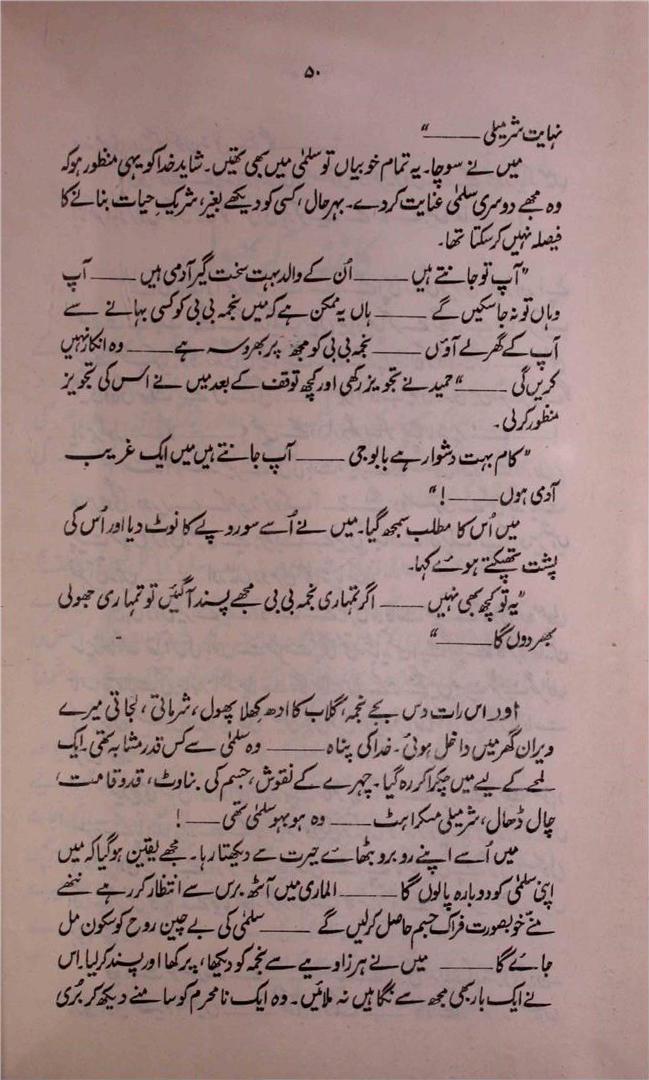 ۵۰
نہایت شرمیلی ——— ”
میں نے سوچا۔ یہ تمام خوبیاں تو سلمٰی میں بھی تھیں۔ شاید خدا کو یہی منظور ہو کہ
وہ مجھے دوسری سلمٰی عنایت کر دے۔ بہرحال، کسی کو دیکھے بغیر، شریکِ حیات بنانے کا
فیصلہ نہیں کر سکتا تھا۔
”آپ تو جانتے ہیں ——— اُن کے والد بہت سخت گیر آدمی ہیں ——— آپ
وہاں تو نہ جا سکیں گے ——— ہاں یہ ممکن ہے کہ میں نجمہ بی بی کو کسی بہانے سے
آپ کے گھر لے آؤں ——— نجمہ بی بی کو مجھ پر بھروسہ ہے ——— وہ انکار نہیں
کریں گی ——— “ حمید نے تجویز رکھی اور کچھ توقف کے بعد میں نے اس کی تجویز
منظور کر لی۔
”کام بہت دشوار ہے بابوجی ——— آپ جانتے ہیں میں ایک غریب
آدمی ہوں ——— ! “
میں اُس کا مطلب سمجھ گیا۔ میں نے اُسے سو روپے کا نوٹ دیا اور اُس کی
پشت تھپکتے ہوئے کہا۔
”یہ تو کچھ بھی نہیں ——— اگر تمہاری نجمہ بی بی مجھے پسند آگئیں تو تمہاری جھولی
بھر دوں گا ——— “
اور اس رات دس بجے نجمہ، گلاب کا ادھ کھلا پھول، شرماتی، لجاتی میرے
ویران گھر میں داخل ہوئی۔ خدا کی پناہ ——— وہ سلمٰی سے کس قدر مشابہ تھی۔ ایک
لمحے کے لیے میں چکرا کر رہ گیا۔ چہرے کے نقوش، جسم کی بناوٹ، قد و قامت،
چال ڈھال، شرمیلی مسکراہٹ ——— وہ ہو بہو سلمٰی تھی ——— !
میں اُسے اپنے روبرو بٹھائے حیرت سے دیکھتا رہا۔ مجھے یقین ہو گیا کہ میں
اپنی سلمٰی کو دوبارہ پا لوں گا ——— الماری میں آٹھ برس سے انتظار کر رہے ننھے
منّے خوبصورت فراک جسم حاصل کر لیں گے ——— سلمٰی کی بے چین روح کو سکون مل
جائے گا ——— میں نے ہر زاویے سے نجمہ کو دیکھا، پرکھا اور پسند کر لیا۔ اس
نے ایک بار بھی مجھ سے نگاہیں نہ ملائیں۔ وہ ایک نامحرم کو سامنے دیکھ کر بُری